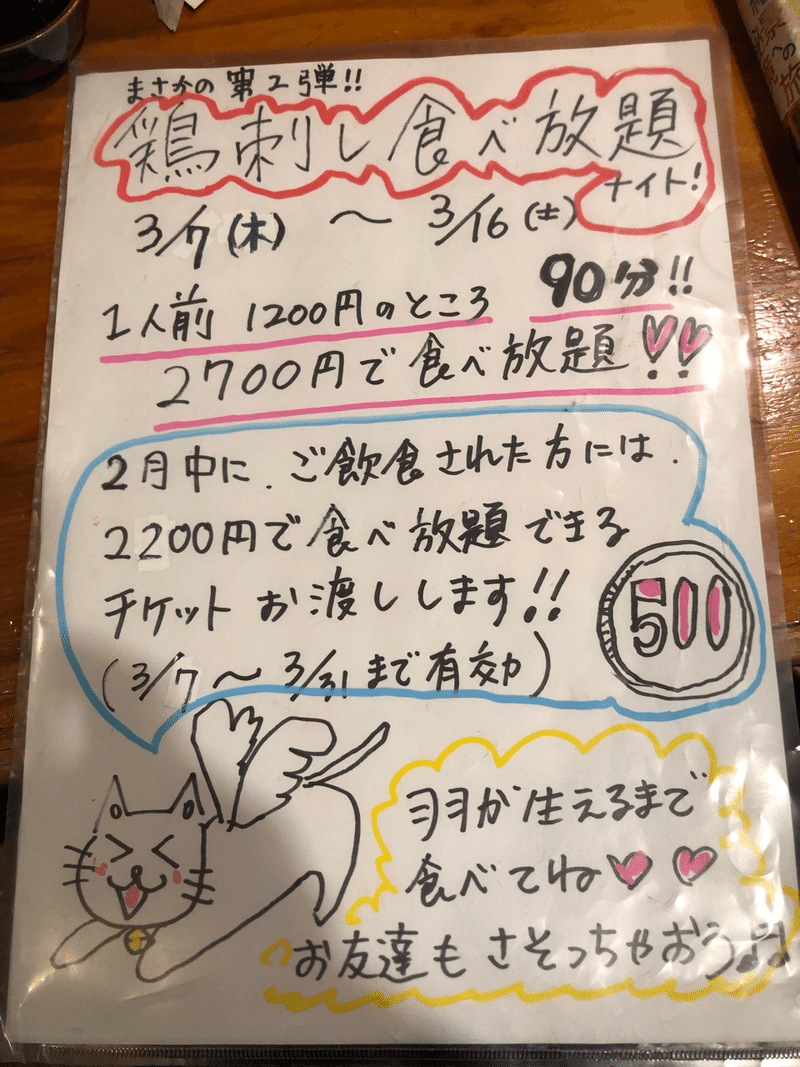 まさかの 第2弾!!
鶏刺し食べ放題
ナイト!
3/7(木) 〜 3/16(土)
1人前 1200円のところ 90分!!
2700円で食べ放題!!
2月中に、ご飲食された方には、
2200円で食べ放題できる
チケットお渡しします!!
(3/7〜3/31まで有効)
500
羽が生えるまで
食べてね
お友達もさそっちゃおう♫